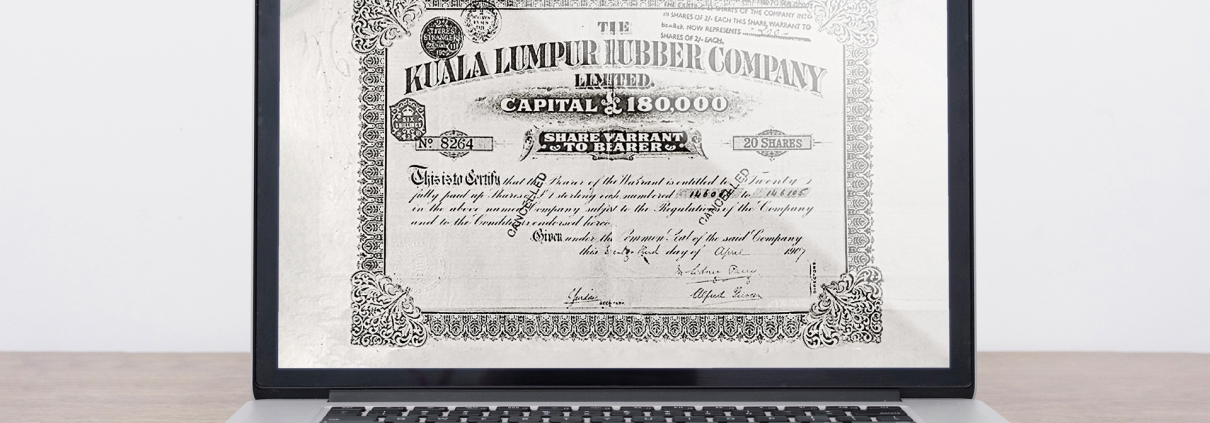 THE CERTIFICATE SHARES OF THE COMPANY INTO
SHARES OF 2/- EACH THIS SHARE WARRANT TO
bearer NOW REPRESENTS 200
SHARES OF 2/- EACH.
TITRES
STRANGERS
THE
KUALA LUMPUR RUBBER COMPANY
LIMITED.
CAPITAL £180,000
Nº 8264
SHARE WARRANT
TO BEARER
20 SHARES
This is to Certify that the Bearer of the Warrant is entitled to Twenty
fully paid up Shares of £1 sterling each numbered to 146105
in the above named Company subject to the Regulations of the Company
and to the Conditions endorsed hereon
CANCELLED
CANCELLED
Given under the Common Seal of the said Company
this day of April 1907
Alfred